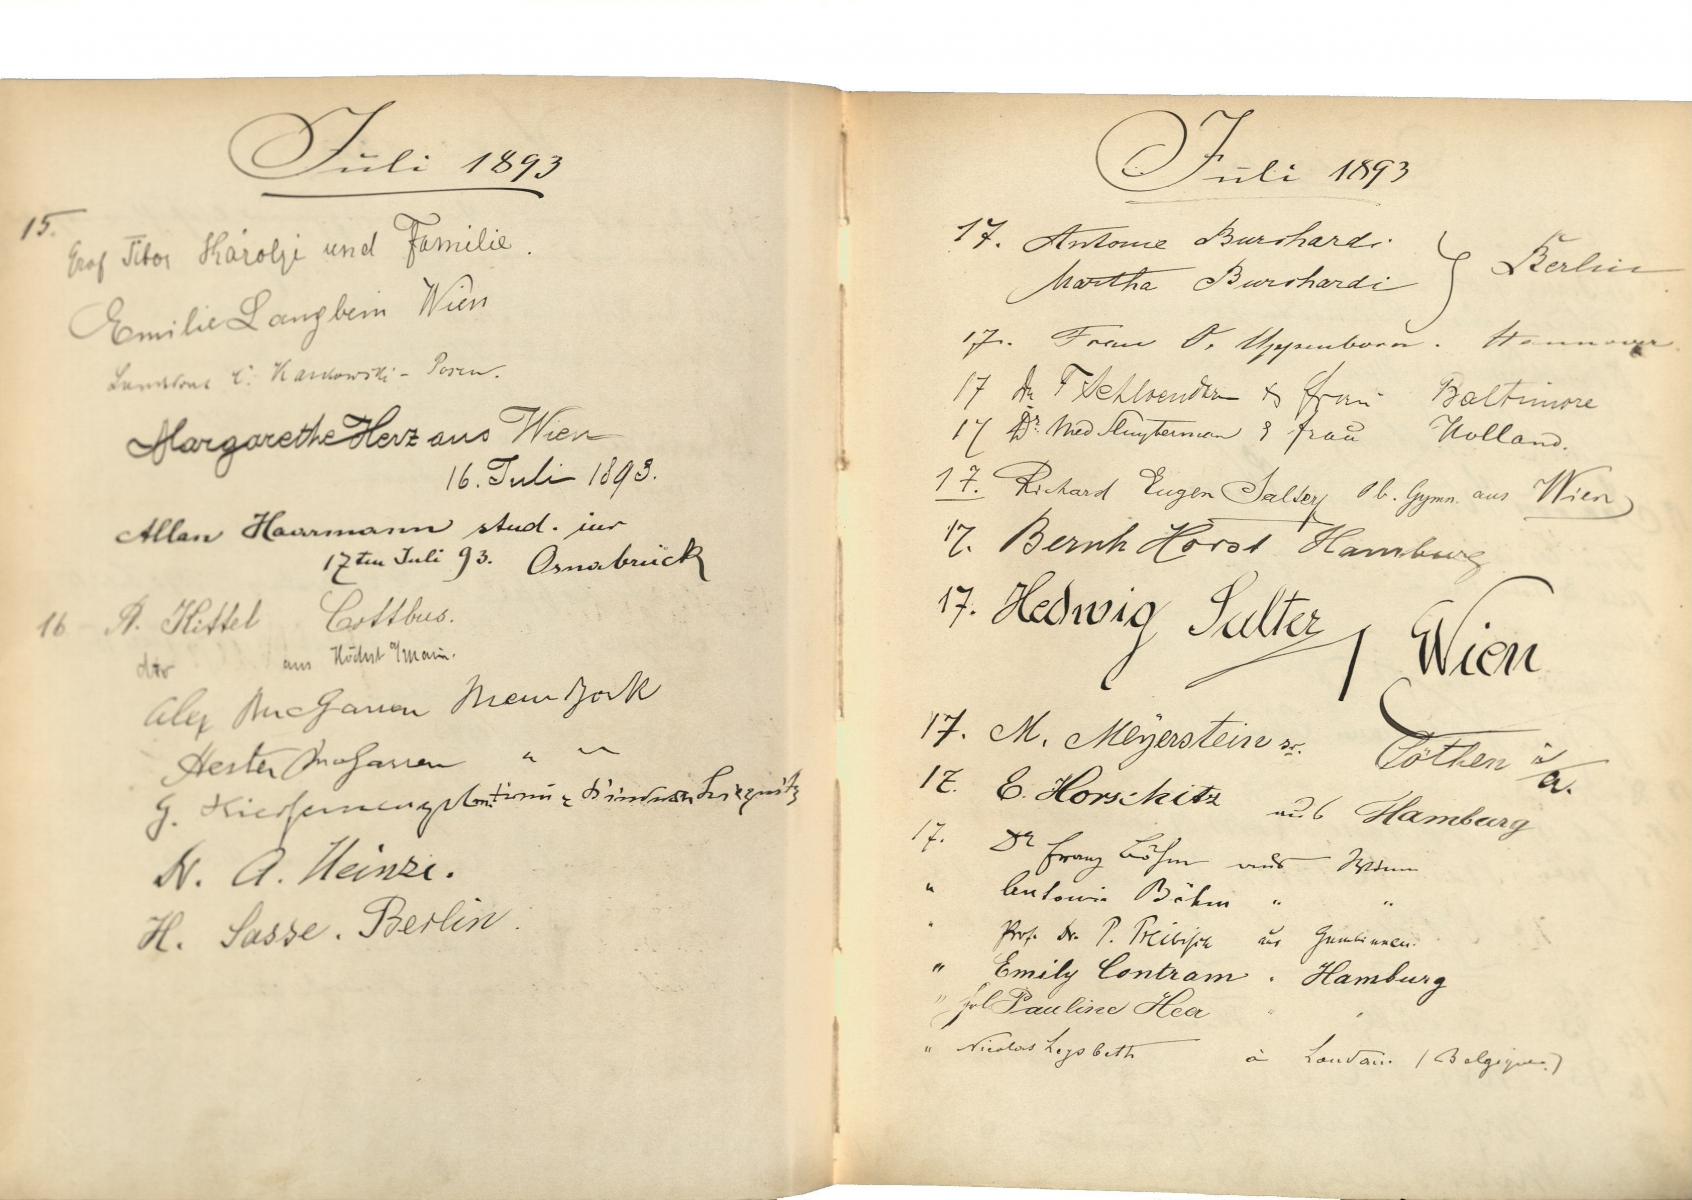 Juli 1893
15.
Graf Tibor Károlyi und Familie.
Emilie Langbein Wien
Karlowski - Posen.
Margarethe Herz aus Wien
16. Juli 1893.
Allan Haarmann stud. jur
17ten Juli 93. Osnabrück
16 A. Kittel Cottbus.
aus Höchst a/Main.
Alex McGarren New York
Hester McGarren " "
G.
Dr. A. Heinze.
H. Sasse. Berlin.
Juli 1893
17. Antonie Burchardi
Martha Burchardi } Berlin
17. Frau O. Uppenborn. Hannover.
17 Dr & Frau Baltimore
17 Dr. Med Sluyterman & Frau Holland.
17. Richard Eugen Salter, Ob. Gymn. aus Wien
17. Bernh Horst Hamburg
17. Hedwig Salter, Wien
17. M. Meyerstein sr. Cöthen i/a.
17. E. Horschitz aus Hamburg
17. Dr Franz Böhm aus Wien
" Antonie Böhm " "
" Prof. Dr. P. Preibisch aus Gumbinnen.
" Emily Contram. Hamburg
" Frl Pauline Heer " "
" Nicolas à Louvain (Belgique.)